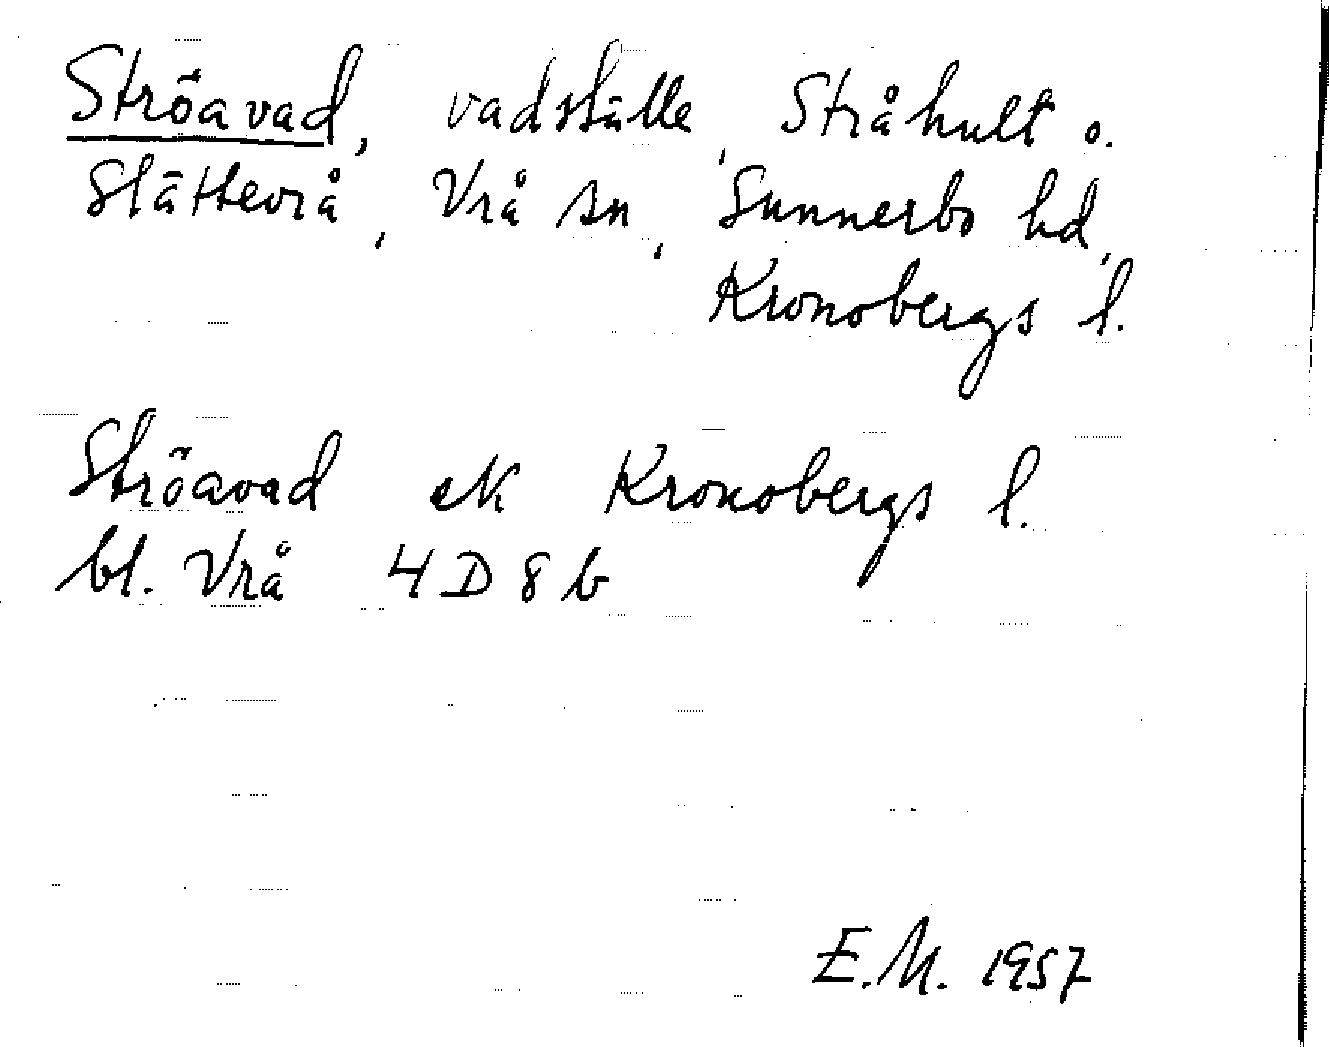 Ströavad, vadställe, Stråhult o.
Slättevrå, Vrå sn, Sunnerbo hd,
Kronobergs l.
Ströavad ek Kronobergs l.
bl. Vrå 4D8b
E.M. 1957